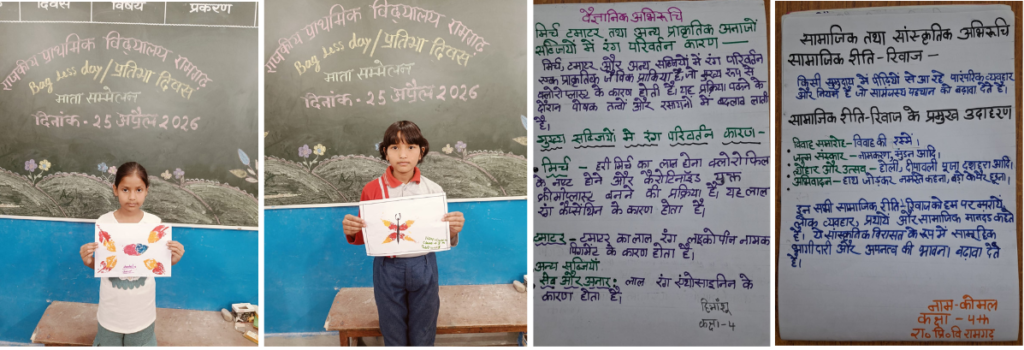 दिवस
विषय
प्रकरण
राजकीय प्राथमिक विद्यालय रामगढ़
Bag less day/प्रतिभा दिवस
माता सम्मेलन
दिनांक - 25 अप्रैल 2026
राजकीय प्राथमिक विद्यालय रामगढ़
Bag less day/प्रतिभा दिवस
माता सम्मेलन
दिनांक - 25 अप्रैल 2026
वैज्ञानिक अभिरूचि
मिर्च टमाटर तथा अन्य प्राकृतिक अनाजों
सब्जियों में रंग परिवर्तन कारण —
मिर्च, टमाटर और अन्य सब्जियों में रंग परिवर्तन
एक प्राकृतिक जैविक प्रक्रिया है, जो मुख्य रूप से
क्लोरोप्लास्ट के कारण होती है। यह प्रक्रिया पकने के
दौरान पोषक तत्वों और रसायनों में बदलाव लाती
है।
मुख्य सब्जियों में रंग परिवर्तन कारण -
मिर्च - हरी मिर्च का लाल होना क्लोरोफिल
के नष्ट होने और कैरोटिनॉइड युक्त
क्रोमोप्लास्ट बनने की प्रक्रिया है। यह लाल
रंग कैप्सेंथिन के कारण होता है।
टमाटर - टमाटर का लाल रंग लाइकोपीन नामक
पिगमेंट के कारण होता है।
अन्य सब्जियाँ
सेब और अनार: लाल रंग एंथोसाइनिन के
कारण होता है।
हिमांशु
कक्षा - 4
सामाजिक तथा सांस्कृतिक अभिरूचि
सामाजिक रीति-रिवाज -
किसी समुदाय में पीढ़ियों से आ रहे पारंपरिक व्यवहार
और नियम हैं जो सामंजस्य पहचान को बढ़ावा देते हैं।
सामाजिक रीति-रिवाज के प्रमुख उदाहरण
विवाह समारोह - विवाह की रस्में।
जन्म संस्कार - नामकरण, मुंडन आदि।
त्यौहार और उत्सव - होली, दीपावली पूजा, दशहरा आदि।
अभिवादन - हाथ जोड़कर नमस्ते कहना, बड़ों के पैर छूना।
इन सभी सामाजिक रीति-रिवाज को हम परंपरागत
लोक व्यवहार, प्रथायें और सामाजिक मानदंड कहते
हैं। ये सांस्कृतिक विरासत के रूप में सामूहिक
भागीदारी और अपनत्व की भावना बढ़ावा देते
हैं।
नाम - कोमल
कक्षा - 4th
रा० प्रा० वि रामगढ़